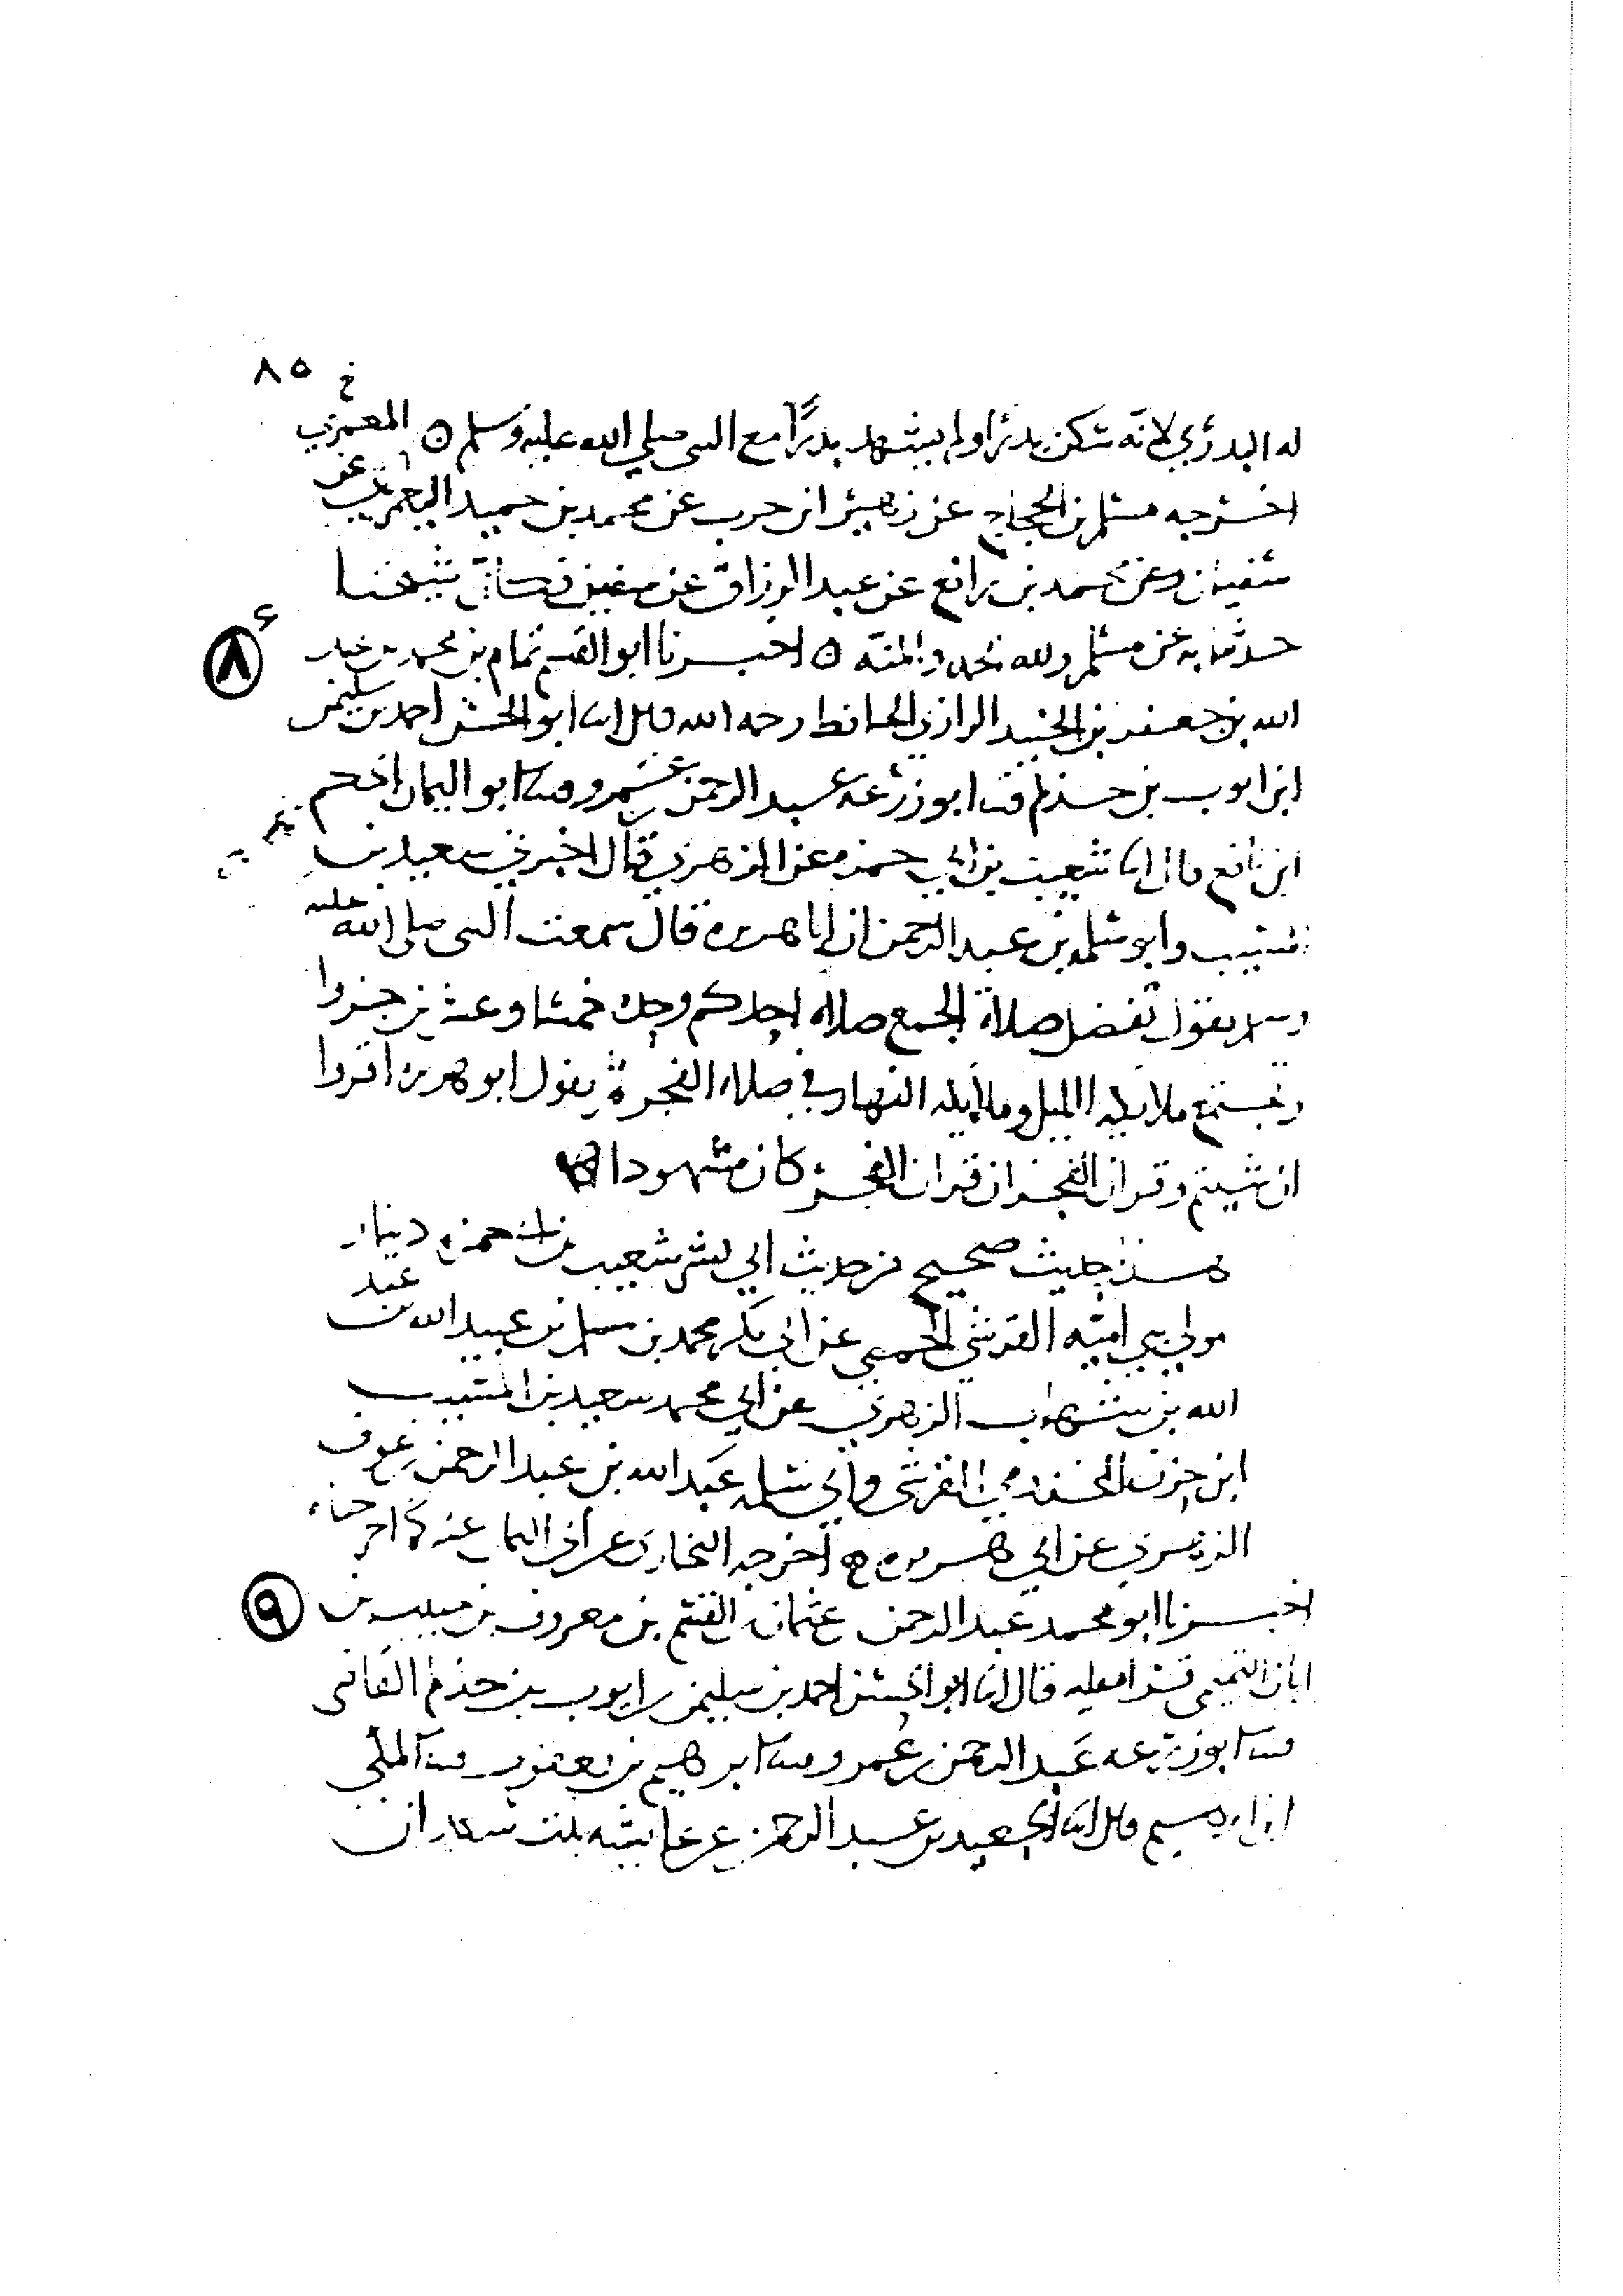 خ ٨٥
له البدري لانه سكن بدرا ولم يشهد بدرا مع النبي صلى الله عليه وسلم ه المعمري
اخرجه مسلم بن الحجاج عن زهير ابن حرب عن محمد بن حميد اليعمري عن
سفين وعن محمد بن رافع عن عبد الرزاق عن سفين فكان شيخنا
حدثنا به عن مسلم ولله الحمد والمنه ه اخبرنا ابو القسم تمام بن محمد بن عبد
٨
الله بن جعفر بن الجنيد الرازي الحافظ رحمه الله قال انا ابو الحسن احمد بن سليمن
ابن ايوب بن حذلم ثنا ابو زرعه عبد الرحمن بن عمرو ثنا ابو اليمان الحكم
ابن نافع قال انا شعيب بن ابي حمزه عن الزهري قال اخبرني سعيد بن
المسيب وابو سلمه بن عبد الرحمن ان ابا هريره قال سمعت النبي صلى الله عليه
وسلم يقول تفضل صلاة الجمع صلاه احدكم وحده خمسا وعشرين جزوا
وتجتمع ملائكه الليل وملائكه النهار في صلاه الفجر ثم يقول ابو هريره اقروا
ان شيتم وقران الفجر ان قران الفجر كان مشهودا
هذا حديث صحيح من حديث ابي بشر شعيب بن ابي حمزه دينار
مولى بني اميه القرشي الحمصي عن ابي بكر محمد بن مسلم بن عبيد الله بن عبد
الله بن شهاب الزهري عن ابي محمد سعيد بن المسيب
ابن حزن المخزومي القرشي وابي سلمه عبد الله بن عبد الرحمن بن عوف
الزهري عن ابي هريره اخرجه البخاري عن ابي اليمان عنه كما اخرجناه
٩
اخبرنا ابو محمد عبد الرحمن بن عثمان بن القسم بن معروف بن حبيب بن
ابان التميمي قراه عليه قال انا ابو الحسن احمد بن سليمن بن ايوب بن حذلم القاضي
ثنا ابو زرعه عبد الرحمن بن عمرو ثنا ابرهيم بن يعقوب ثنا المكي
ابن ابرهيم قال انا الجعيد بن عبد الرحمن عن عايشه بنت سعد ان